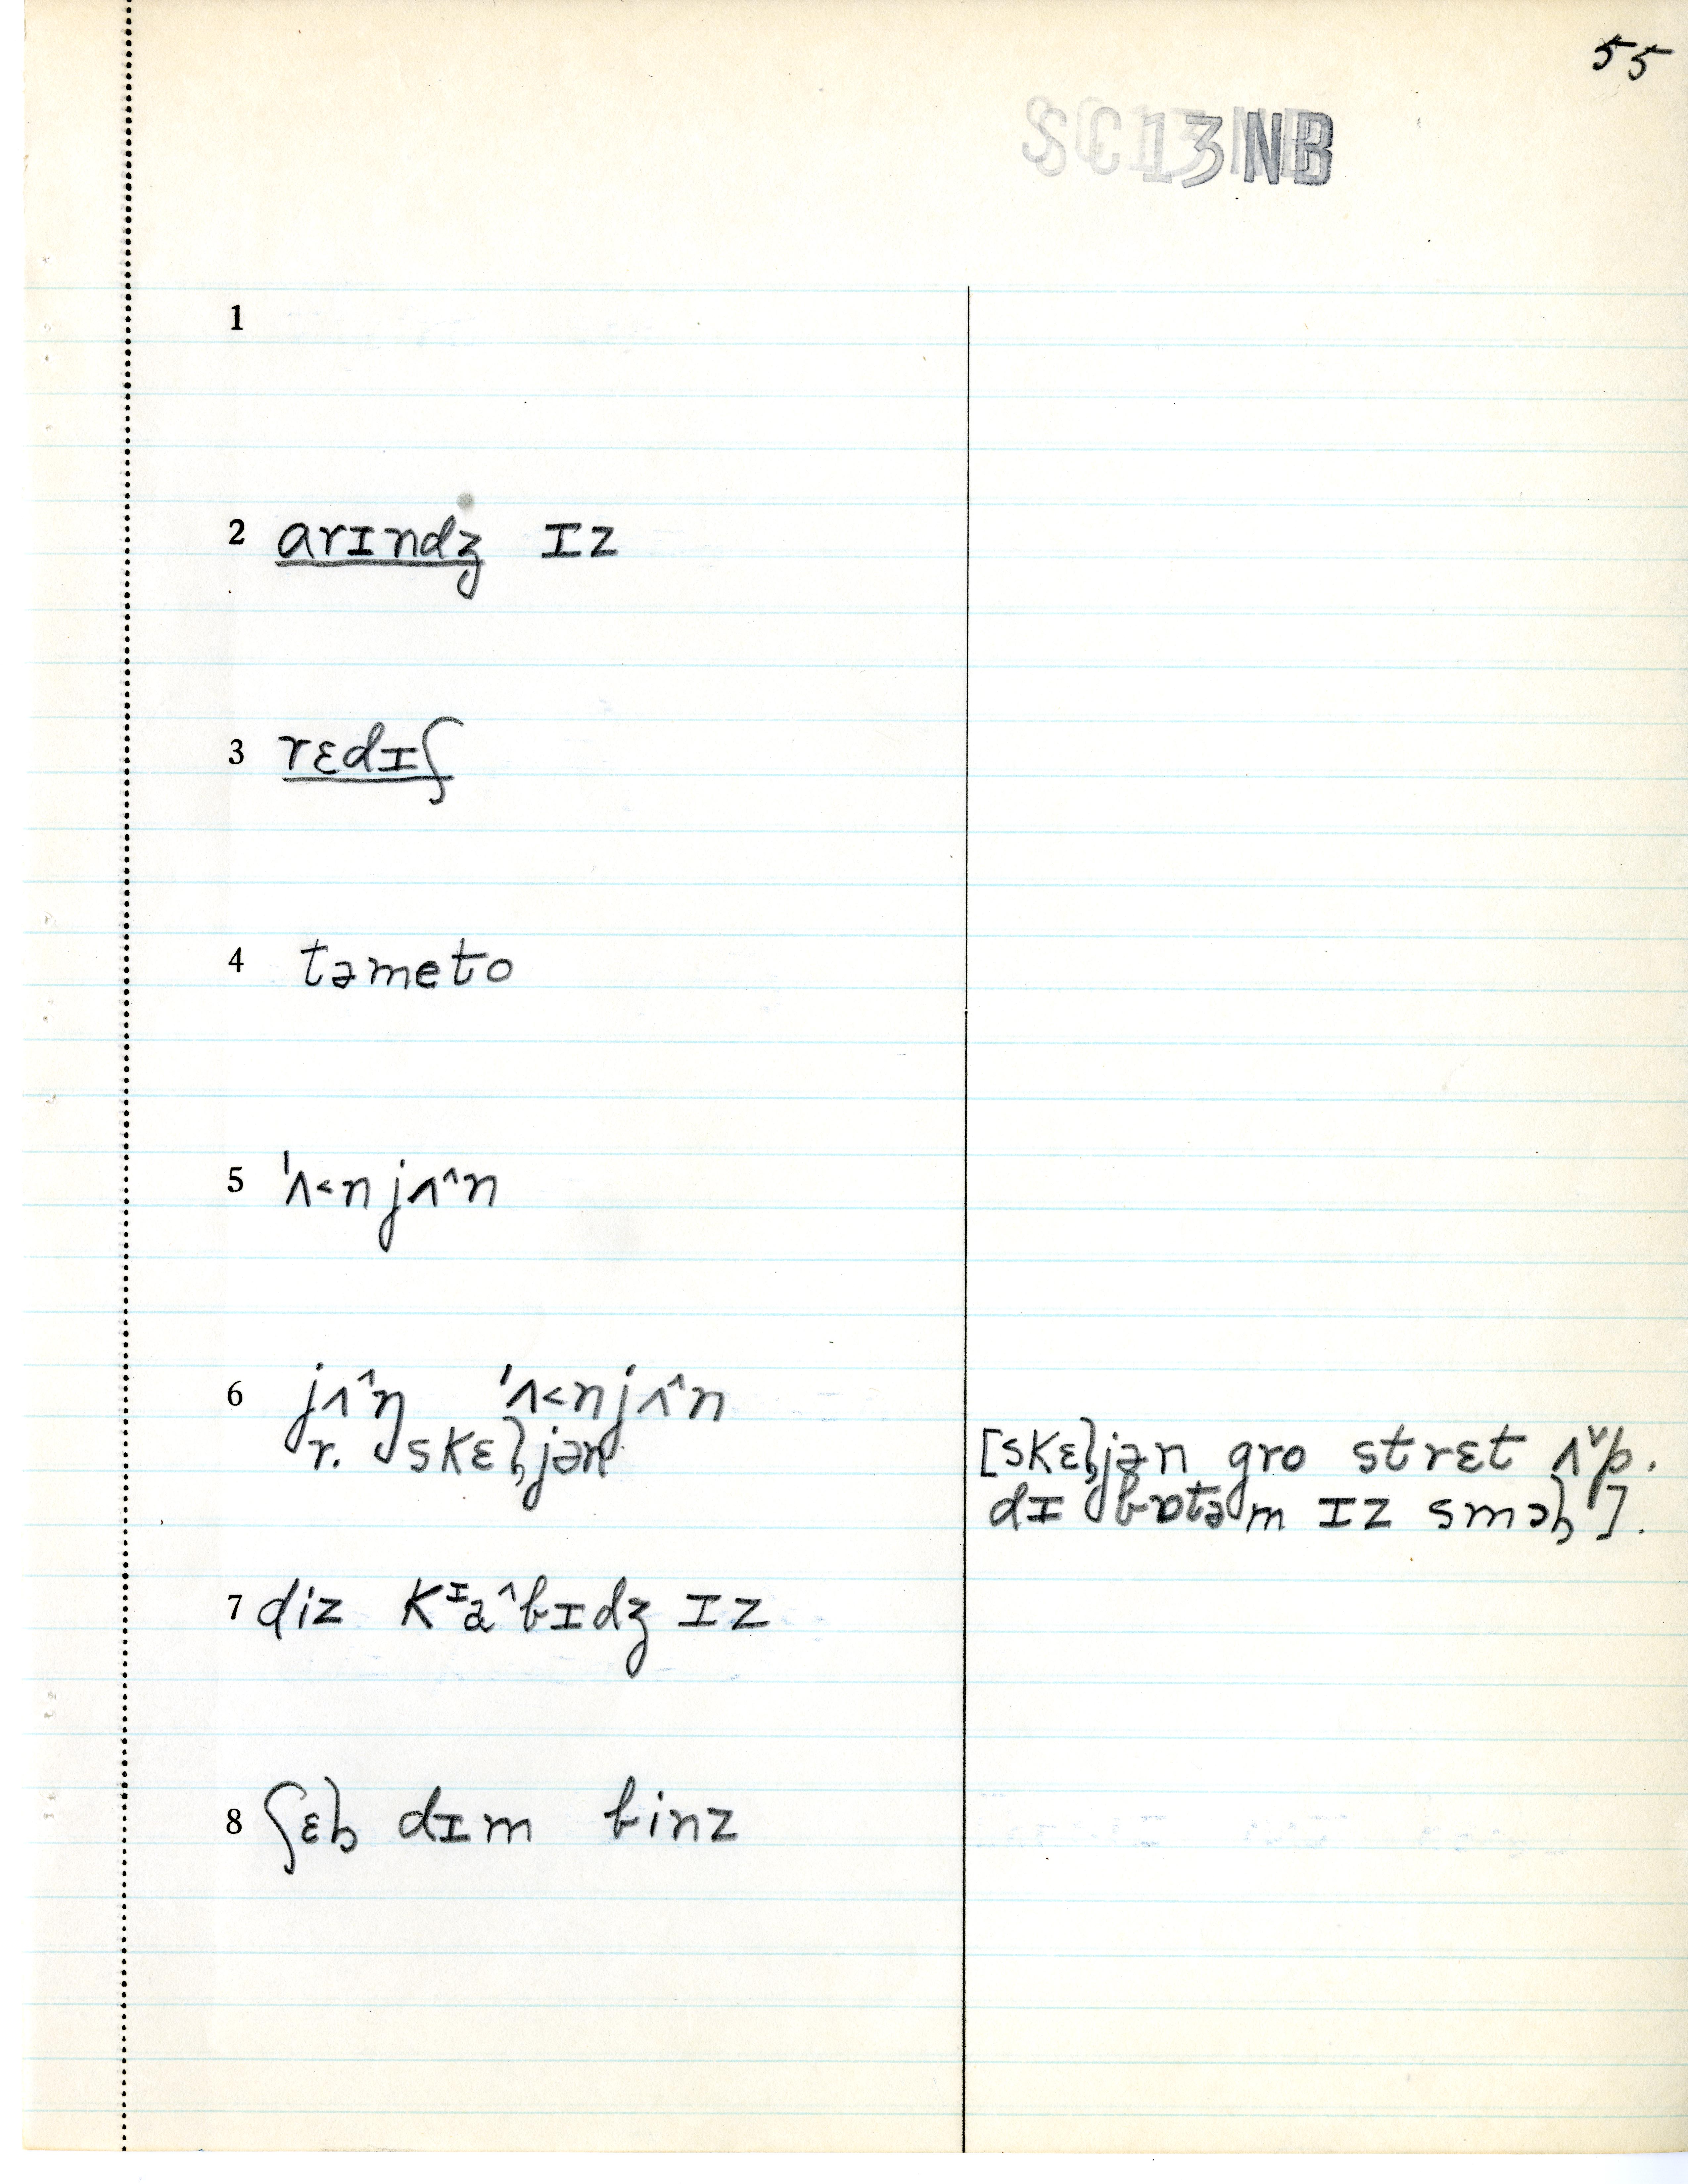 55
SC13NB
1
2 arɪndʒ ɪz
3 rɛdɪʃ
4 təmeto
5 'ʌ˂njʌ^n
6 jʌ^ŋ 'ʌ˂njʌ^n
r. skɛɫjən
[skɛɫjən gro stret ʌ˅p.
dɪ bɒtəm ɪz smɔɫ].
7 diz kᶦa^bɪdʒ ɪz
8 ʃɛɫ dɪm binz